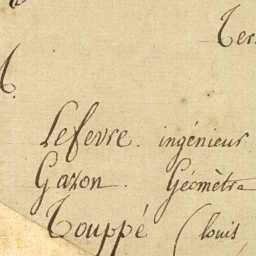 Ter
Lefevre. ingénieur
Gazon. Géomètre
Touppé (louis